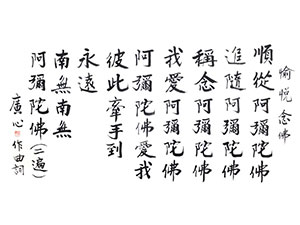 愉悅念佛
順從阿彌陀佛
進隨阿彌陀佛
稱念阿彌陀佛
我愛阿彌陀佛
阿彌陀佛愛我
彼此牽手到
永遠
南無南無
阿彌陀佛(二遍)
廣心作曲詞